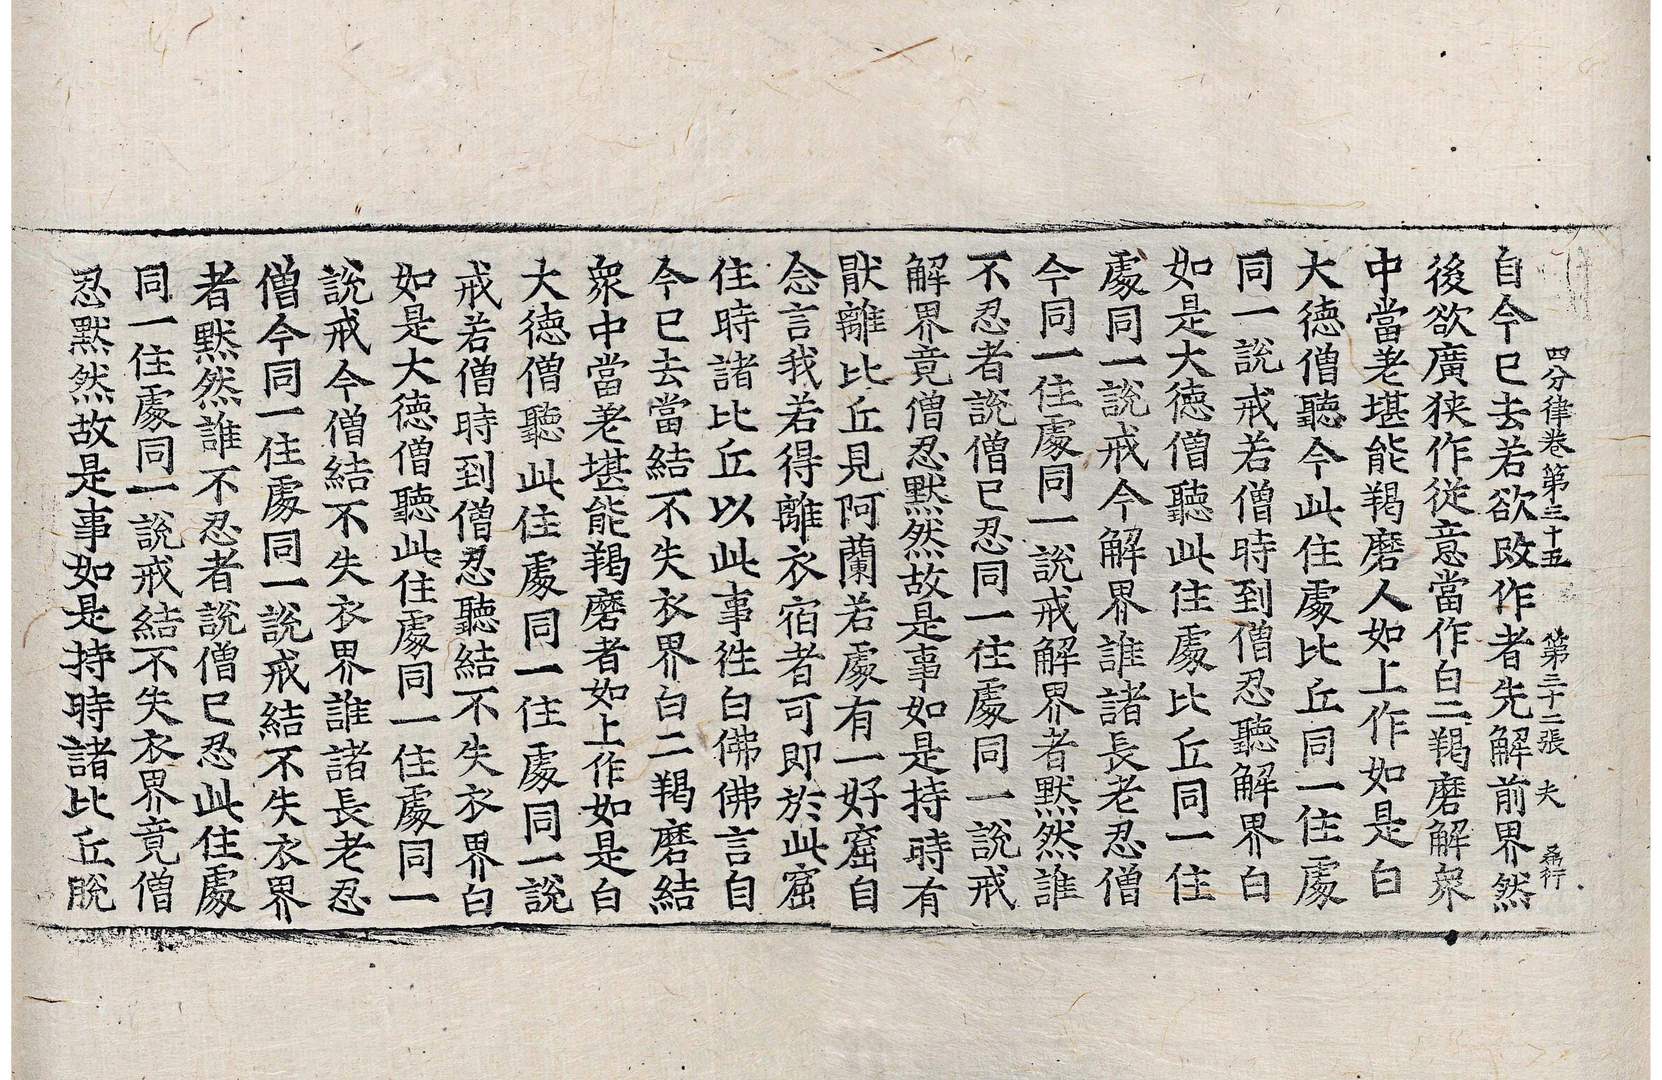 四分律卷第三十五 第三十二張 夫
自今已去若欲改作者先解前界然
後欲廣狭作從意當作白二羯磨解衆
中當差堪能羯磨人如上作如是白
大德僧聽今此住處比丘同一住處
同一說戒若僧時到僧忍聽解界白
如是大德僧聽此住處比丘同一住
處同一說戒今解界誰諸長老忍僧
今同一住處同一說戒解界者黙然誰
不忍者說僧已忍同一住處同一說戒
解界竟僧忍黙然故是事如是持時有
猒離比丘見阿蘭若處有一好窟自
念言我若得離衣宿者可即於此窟
住時諸比丘以此事徃白佛佛言自
今已去當結不失衣界白二羯磨結
衆中當差堪能羯磨者如上作如是白
大德僧聽此住處同一住處同一說
戒若僧時到僧忍聽結不失衣界白
如是大德僧聽此住處同一住處同一
說戒今僧結不失衣界誰諸長老忍
僧今同一住處同一說戒結不失衣界
者黙然誰不忍者說僧已忍此住處
同一住處同一說戒結不失衣界竟僧
忍黙然故是事如是持時諸比丘脫